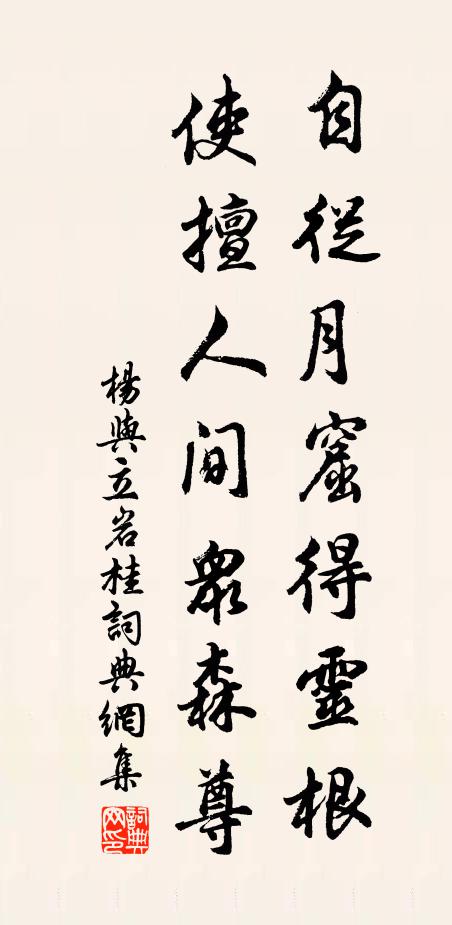 自從月窟得靈根
使擅人間眾森尊
楊與立岩桂詞典網集
詞典網印